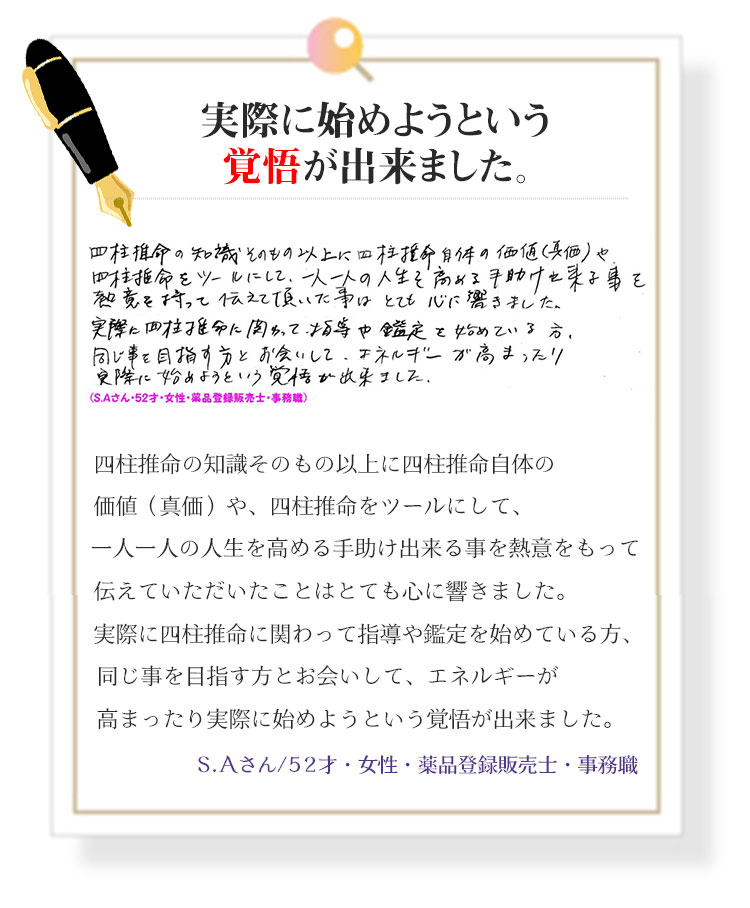 実際に始めようという
覚悟が出来ました。
四柱推命の知識そのもの以上に四柱推命自体の価値(真価)や
四柱推命をツールにして、一人一人の人生を高める手助け出来る事を
熱意を持って伝えて頂いた事はとても心に響きました。
実際に四柱推命に関わって指導や鑑定を始めている方、
同じ事を目指す方とお会いして、エネルギーが高まったり
実際に始めようという覚悟が出来ました。
(S.Aさん・52才・女性・薬品登録販売士・事務職)
四柱推命の知識そのもの以上に四柱推命自体の
価値（真価）や、四柱推命をツールにして、
一人一人の人生を高める手助け出来る事を熱意をもって
伝えていただいたことはとても心に響きました。
実際に四柱推命に関わって指導や鑑定を始めている方、
同じ事を目指す方とお会いして、エネルギーが
高まったり実際に始めようという覚悟が出来ました。
S.Aさん/52才・女性・薬品登録販売士・事務職